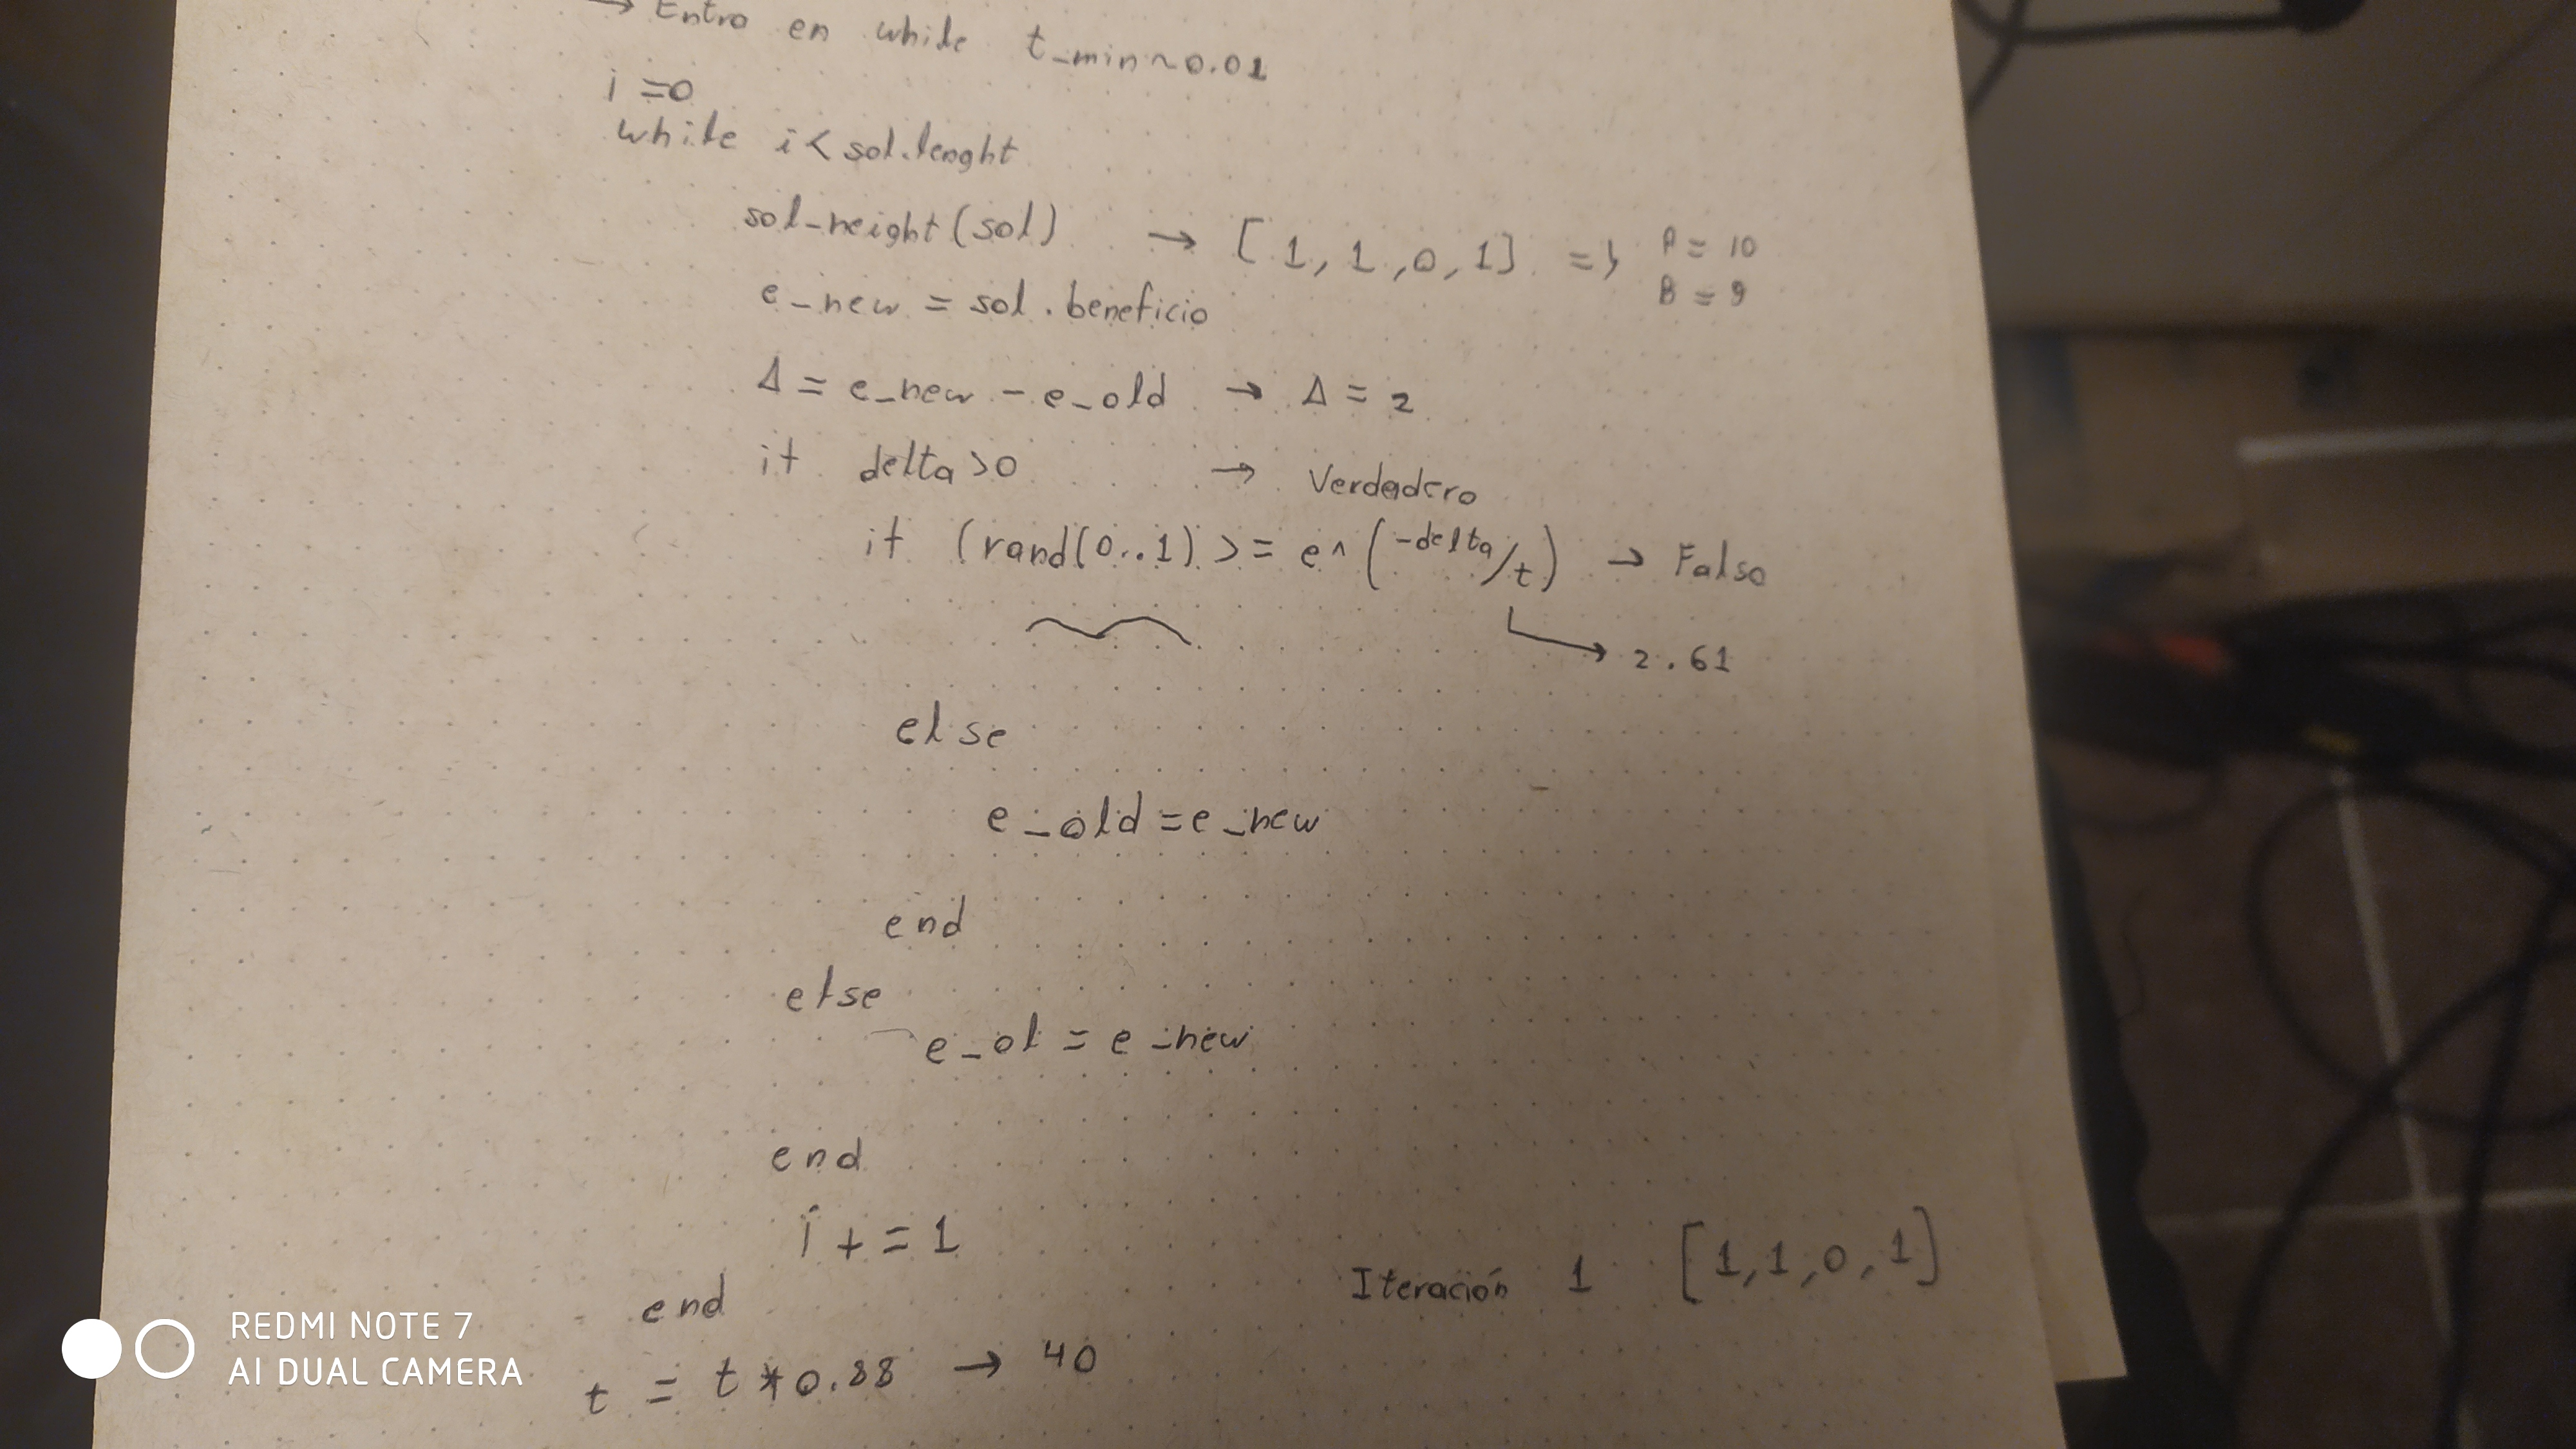 → Entro en while t_min ~ 0.01
i = 0
while i < sol.lenght
sol_neight(sol) → [1, 1, 0, 1] => P = 10
B = 9
e_new = sol.beneficio
Δ = e_new - e_old → Δ = 2
if delta > 0 → Verdadero
if (rand(0..1) >= e^(-delta/t) → Falso
2.61
else
e_old = e_new
end
else
e_ol = e_new
end
i += 1
end
Iteración 1 [1, 1, 0, 1]
t = t * 0.88 → 40
REDMI NOTE 7
AI DUAL CAMERA